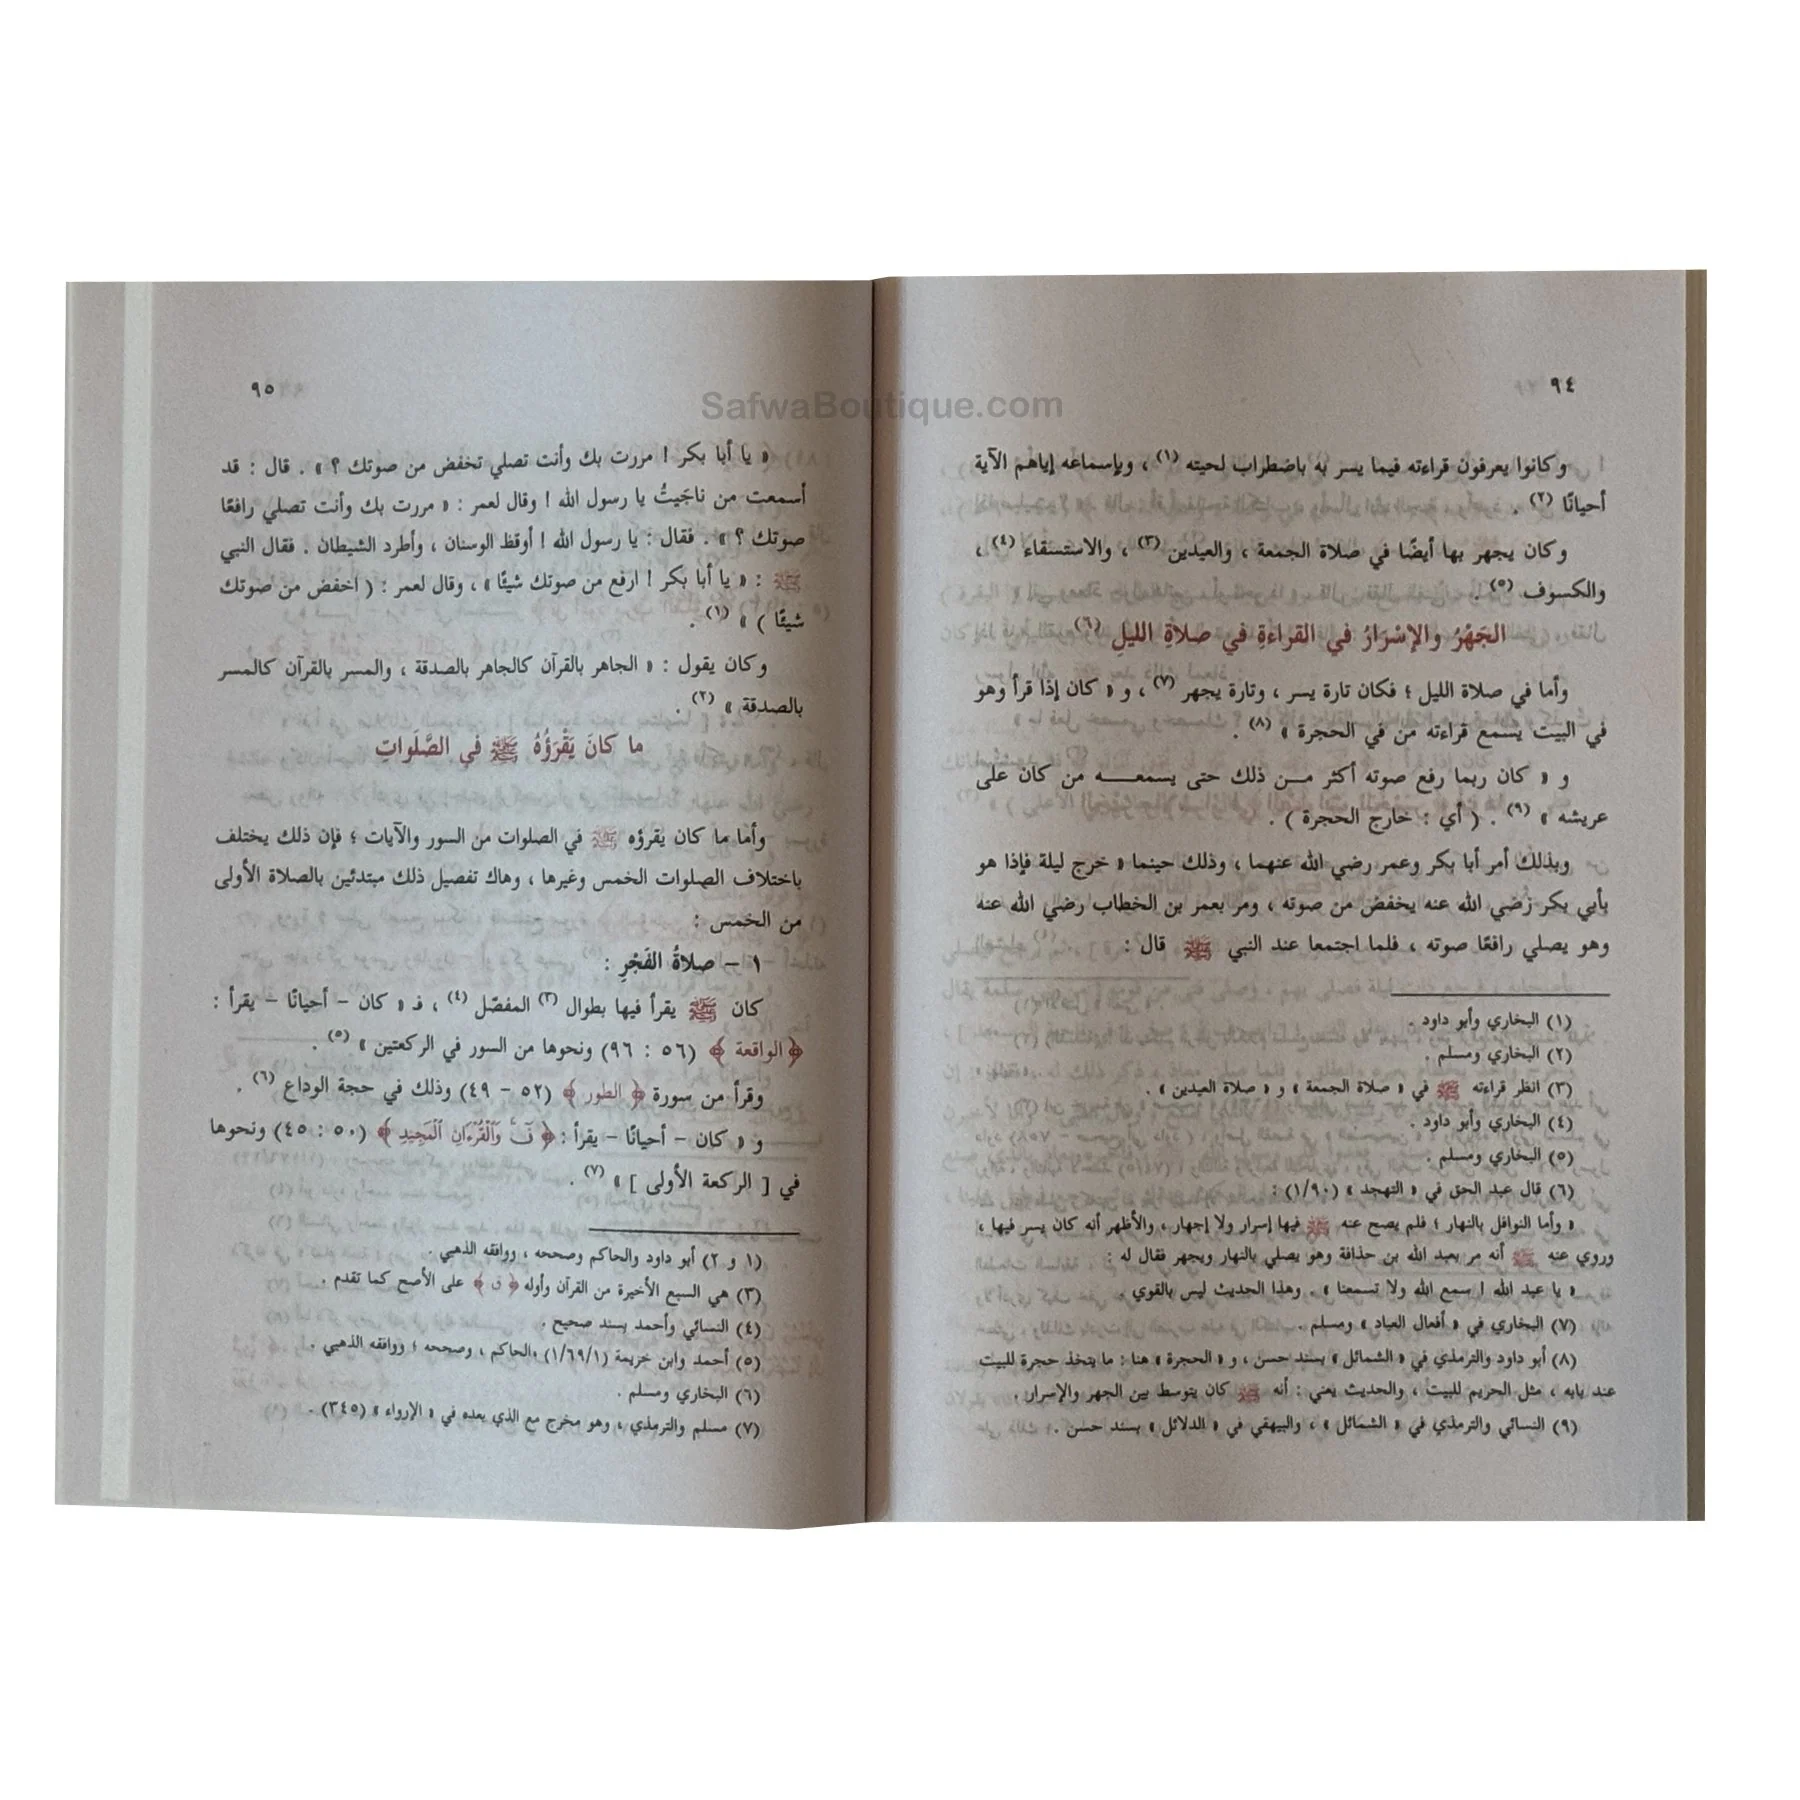 SafwaBoutique.com
٩٤
وكانوا يعرفون قراءته فيما يسر به باضطراب لحيته (١) ، وبإسماعه إياهم الآية
أحيانًا (٢) .
وكان يجهر بها أيضًا في صلاة الجمعة ، والعيدين (٣) ، والاستسقاء (٤) ،
والكسوف (٥) .
الجَهْرُ والإسْرَارُ في القراءةِ في صلاةِ الليلِ (٦)
وأما في صلاة الليل ؛ فكان تارة يسر ، وتارة يجهر (٧) ، و « كان إذا قرأ وهو
في البيت يسمع قراءته من في الحجرة » (٨) .
و « كان ربما رفع صوته أكثر مـن ذلك حتى يسمعـه من كان على
عريشه » (٩) . ( أي : خارج الحجرة ) .
وبذلك أمر أبا بكر وعمر رضي الله عنهما ، وذلك حينما « خرج ليلة فإذا هو
بأبي بكر رضي الله عنه يخفض من صوته ، ومر بعمر بن الخطاب رضي الله عنه
وهو يصلي رافعًا صوته ، فلما اجتمعا عند النبي ﷺ قال :
(١) البخاري وأبو داود .
(٢) البخاري ومسلم .
(٣) انظر قراءته ﷺ في « صلاة الجمعة » و « صلاة العيدين » .
(٤) البخاري وأبو داود .
(٥) البخاري ومسلم .
(٦) قال عبد الحق في « التهجد » (١/٩٠) :
« وأما النوافل بالنهار ؛ فلم يصح عنه ﷺ فيها إسرار ولا إجهار ، والأظهر أنه كان يسر فيها ،
وروي عنه ﷺ أنه مر بعبد الله بن حذافة وهو يصلي بالنهار ويجهر فقال له :
« يا عبد الله ! سمع الله ولا تسمعنا » . وهذا الحديث ليس بالقوي .
(٧) البخاري في « أفعال العباد » ومسلم .
(٨) أبو داود والترمذي في « الشمائل » بسند حسن ، و « الحجرة » هنا : ما يتخذ حجرة للبيت
عند بابه ، مثل الحريم للبيت ، والحديث يعني : أنه ﷺ كان يتوسط بين الجهر والإسرار .
(٩) النسائي والترمذي في « الشمائل » ، والبيهقي في « الدلائل » بسند حسن .
٩٥
« يا أبا بكر ! مررت بك وأنت تصلي تخفض من صوتك ؟ » . قال : قد
أسمعت من ناجَيتُ يا رسول الله ! وقال لعمر : « مررت بك وأنت تصلي رافعًا
صوتك ؟ » . فقال : يا رسول الله ! أوقظ الوسنان ، وأطرد الشيطان . فقال النبي
ﷺ : « يا أبا بكر ! ارفع من صوتك شيئًا » ، وقال لعمر : ( اخفض من صوتك
شيئًا ) » (١) .
وكان يقول : « الجاهر بالقرآن كالجاهر بالصدقة ، والمسر بالقرآن كالمسر
بالصدقة » (٢) .
ما كانَ يَقْرَؤُهُ ﷺ في الصَّلَواتِ
وأما ما كان يقرؤه ﷺ في الصلوات من السور والآيات ؛ فإن ذلك يختلف
باختلاف الصلوات الخمس وغيرها ، وهاك تفصيل ذلك مبتدئين بالصلاة الأولى
من الخمس :
١ – صلاةُ الفَجْرِ :
كان ﷺ يقرأ فيها بطوال (٣) المفصّل (٤) ، فـ « كان – أحيانًا – يقرأ :
﴿ الواقعة ﴾ (٥٦ : ٩٦) ونحوها من السور في الركعتين » (٥) .
وقرأ من سورة ﴿ الطور ﴾ (٥٢ – ٤٩) وذلك في حجة الوداع (٦) .
و « كان – أحيانًا – يقرأ : ﴿ قٓ وَٱلْقُرْءَانِ ٱلْمَجِيدِ ﴾ (٥٠ : ٤٥) ونحوها
في [ الركعة الأولى ] » (٧) .
(١ و ٢) أبو داود والحاكم وصححه ، ووافقه الذهبي .
(٣) هي السبع الأخيرة من القرآن وأوله ﴿ ق ﴾ على الأصح كما تقدم .
(٤) النسائي وأحمد بسند صحيح .
(٥) أحمد وابن خزيمة (١/٦٩/١) والحاكم ، وصححه ؛ ووافقه الذهبي .
(٦) البخاري ومسلم .
(٧) مسلم والترمذي ، وهو مخرج مع الذي بعده في « الإرواء » (٣٤٥) .